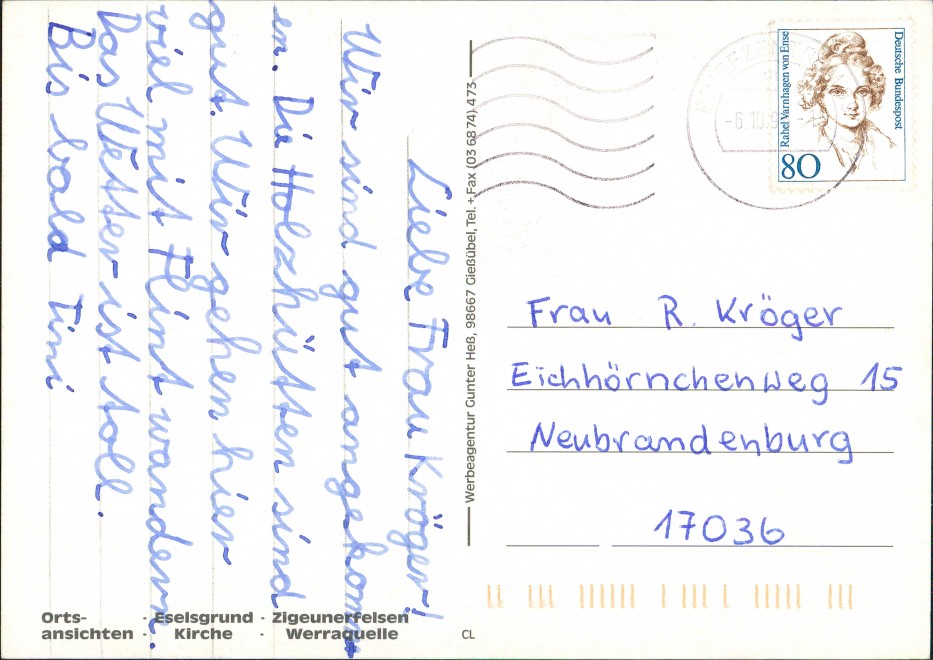 Liebe Frau Kröger!
Wir sind gut angekom
en. Die Holzhütten sind
gut. Wir gehen hier
viel mit Flint wandern.
Das Wetter ist toll.
Bis bald Timi
Orts- · Eselsgrund · Zigeunerfelsen
ansichten · Kirche · Werraquelle
Werbeagentur Gunter Heß, 98667 Gießübel, Tel. + Fax (0 36 8 74) 473
CL
Deutsche Bundespost
Rahel Varnhagen von Ense
80
-6.10.9
Frau R. Kröger
Eichhörnchenweg 15
Neubrandenburg
17036